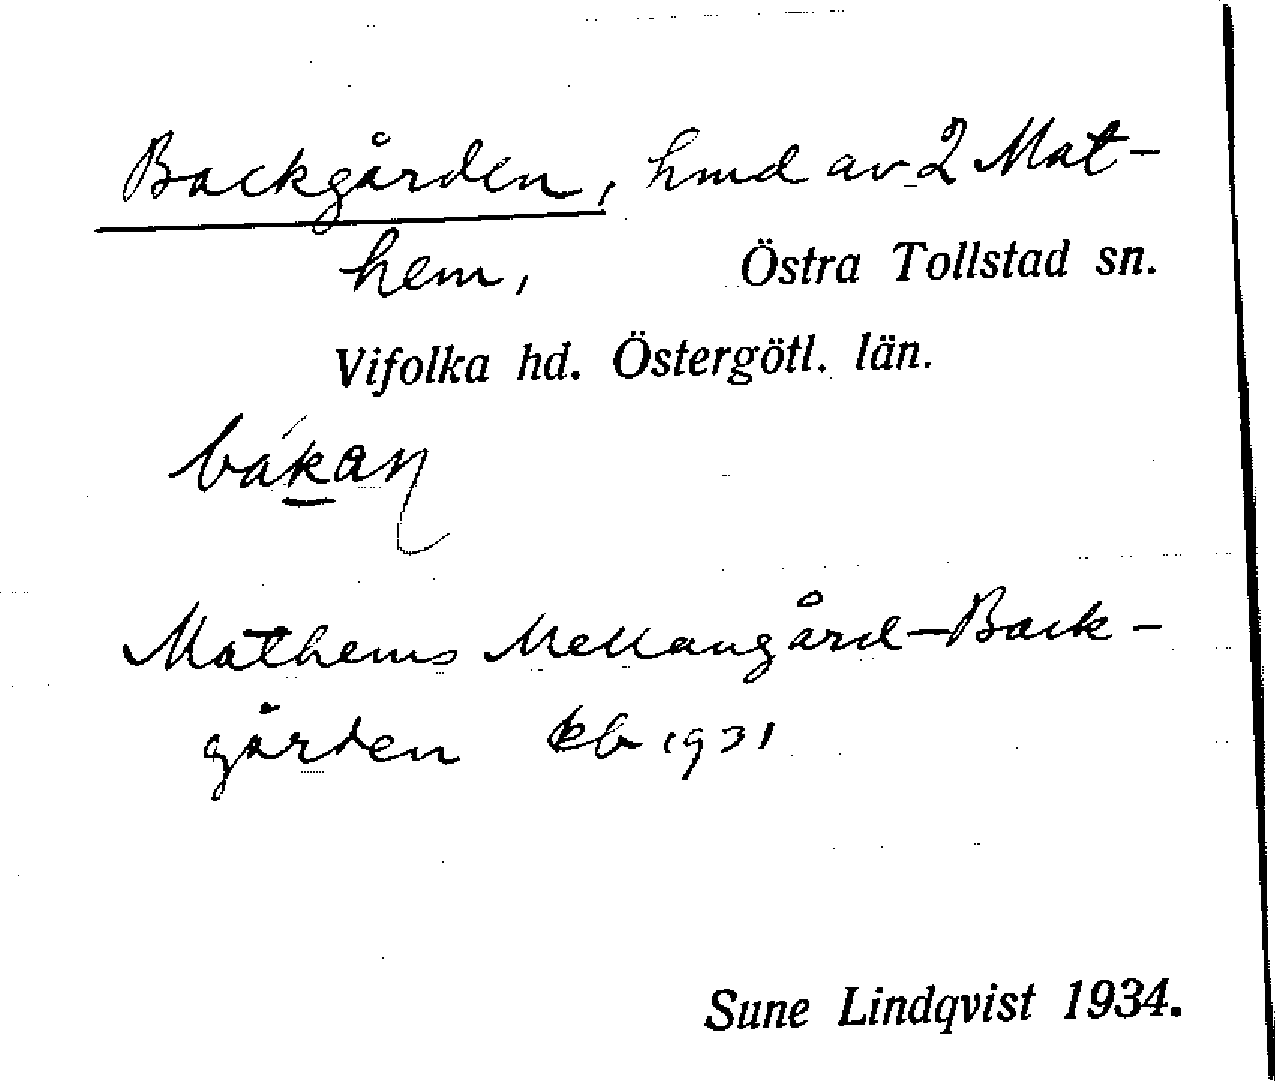 Backgården, hmd av 2 Mat-
hem, Östra Tollstad sn.
Vifolka hd. Östergötl. län.
bákaŋ
Mathems Mellangård-Back-
gården kb 1931
Sune Lindqvist 1934.